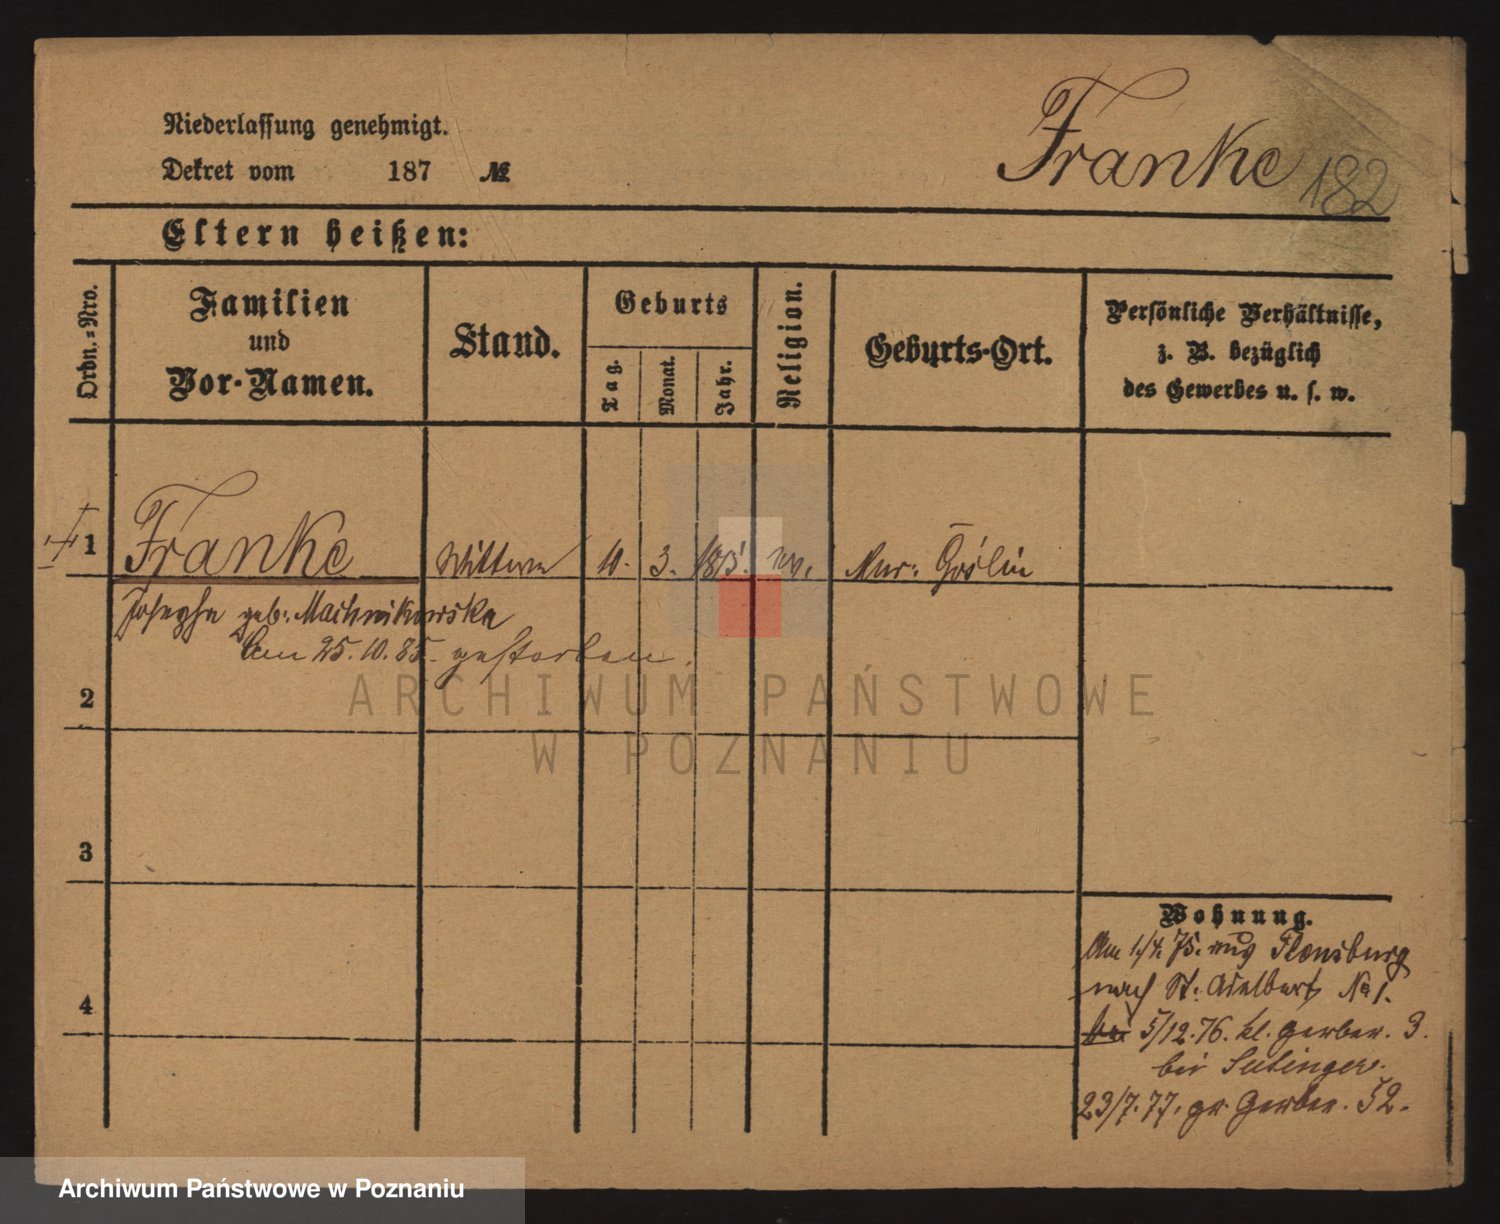 Niederlassung genehmigt.
Dekret vom 187 №
Franke 182
Eltern heißen:
Ordn.-Nro.
Familien
und
Vor-Namen.
Stand.
Geburts
Tag.
Monat.
Jahr.
Religion.
Geburts-Ort.
Persönliche Verhältnisse,
z. B. bezüglich
des Gewerbes u. s. w.
1 Franke Wittwe 3. Mur: Göslin
Josepha geb: Machnikowska
Am 25.10.85. gestorben.
2
ARCHIWUM PAŃSTWOWE
W POZNANIU
3
4
Wohnung.
Am 1./4. 75. aus Flensburg
nach St: Adalbert № 1.
5/12.76. kl. Gerber. 3.
bei
23/7.77. gr. Gerber. 52.
Archiwum Państwowe w Poznaniu